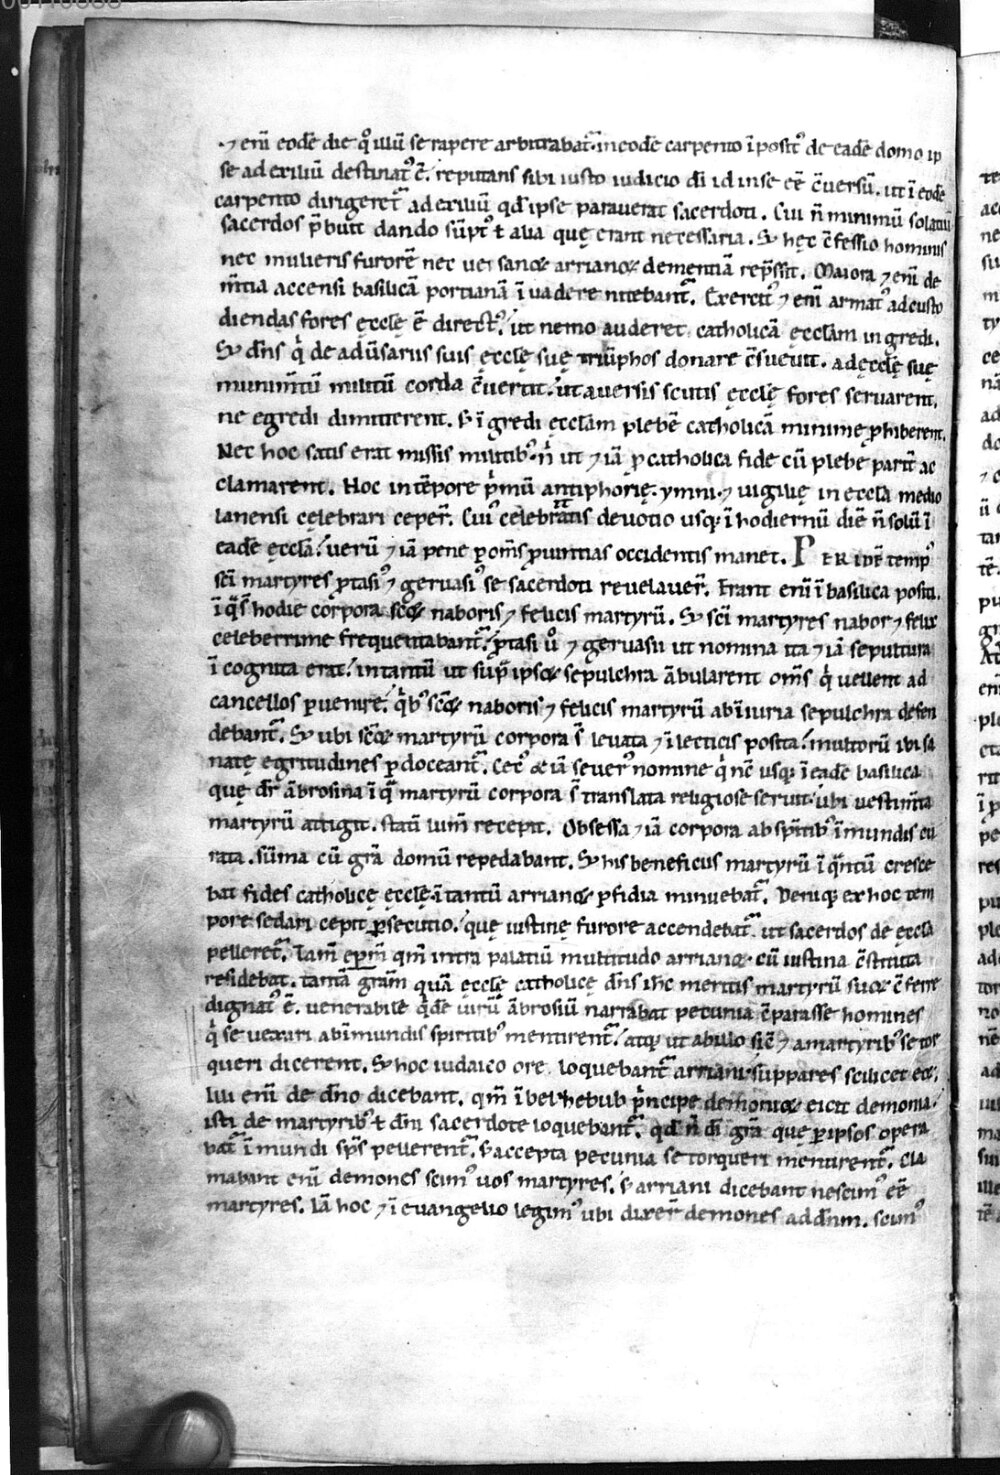 ⁊ eni̅ eode̅ die q̊ illu̅ se rapere arbitrabat᷑. in eode̅ carpento i̅posit᷒ de eade̅ domo ip
se ad exiliu̅ destinat᷒ e̅. reputans sibi iusto iudicio di̅ id in se ee̅ c̅uersu̅. ut i̅ eode̅
carpento dirigeret᷑ ad exiliu̅ qd̅ ipse parauerat sacerdoti. Cui n̅ minimu̅ solatiu̅
sacerdos p̅buit dando su̅pt᷒ ł alia quę erant necessaria. S; hęc c̅fessio hominis
nec mulieris furore̅ nec uesanoꝝ arrianoꝝ dementia̅ rep̅ssit. Maiora ⁊ eni̅ de
m̅tia accensi basilica̅ portiana̅ i̅uadere nitebant᷑. Exercit᷒ ⁊ eni̅ armat᷒ ad custo
diendas fores ęcclę e̅ direct᷒. ut nemo auderet catholica̅ ęccl̅am ingredi.
S; dn̅s q̇ de adu̅sariis suis ęcclę suę triu̅phos donare c̅sueuit. ad ęcclę suę
munim̅tu̅ militu̅ corda c̅uertit. ut auersis scutis ęcclę fores seruarent.
ne egredi dimitterent. s; i̅gredi ęccl̅am plebe̅ catholica̅ minime ꝓhiberent.
Nec hoc satis erat missis militib᷒. n̊ ut ⁊ ia̅ ꝓ catholica fide cu̅ plebe parit̅ ac
clamarent. Hoc in te̅pore p̊mu̅ antiphonę. ymni. ⁊ uigilię in eccl̅a medio
lanensi cęlebrari ceper̅. Cui᷒ celebratis deuotio usq; i̅ hodiernu̅ die̅ n̅ solu̅ i̅
eade̅ ęccl̅a. ueru̅ ⁊ ia̅ pene ꝑ om̅s ꝓuintias occidentis manet. PER ide̅ temp᷒
sc̅i martyres ꝓtasi᷒ ⁊ geruasi᷒ se sacerdoti reuelauer̅. Erant eni̅ i̅ basilica positi.
i̅ q̊ s̅ hodie corpora sc̅oꝝ naboris ⁊ felicis martyru̅. S; sc̅i martyres nabor ⁊ felix
celeberrime frequentabant᷑. ꝓtasii ů ⁊ geruasii ut nomina ita ⁊ ia̅ sepultura
i̅cognita erat. intantu̅ ut sup̅ ipsoꝝ sepulchra a̅bularent om̅s q̇ uellent ad
cancellos ꝑuenire. q̇b᷒ sc̅oꝝ naboris ⁊ felicis martyru̅ ab i̅iuria sepulchra defen
debant᷑. S; ubi sc̅oꝝ martyru̅ corpora s̅ leuata ⁊ i̅ lecticis posita. multoru̅ ibi sa
natę egritudines ꝑdoceant᷑. Cec᷒ &ia̅ seuer᷒ nomine q̇ nc̅ usq; i̅ eade̅ basilica
quę dr̅ a̅brosina i̅ q̅ martyru̅ corpora s̅ translata religiose seruit. ubi uestim̅ta
martyru̅ attigit. stati̅ lum̅ recepit. Obsessa ⁊ ia̅ corpora ab sp̅itib᷒ i̅mundis cu
rata. su̅ma cu̅ gr̅a domu̅ repedabant. S; his beneficiis martyru̅ i̅ q̅ntu̅ cresce
bat fides catholicę ęcclę. i̅tantu̅ arrianoꝝ ꝑfidia minuebat᷑. Deniq; ex hoc tem
pore sedari cepit ꝑsecutio. quę iustinę furore accendebat᷑ ut sacerdos de ęccl̅a
pelleret᷑. Tam̅ qm̅ intra palatiu̅ multitudo arrianoꝝ cu̅ iustina c̅stituta
residebat. tanta̅ gr̅am qua̅ ęcclę catholicę dn̅s ih̅c meritis martyru̅ suoꝝ c̅ferre
dignat᷒ e̅. uenerabile̅ q̇de̅ uiru̅ a̅brosiu̅ narrabat pecunia c̅parasse homines
q̇ se uexari ab i̅mundis spiritib᷒ mentirent᷑. atq; ut ab illo sic̅ ⁊ a martyrib᷒ se tor
queri dicerent. S; hoc iudaico ore loquebant᷑ arriani suppares scilicet eoꝝ.
Illi eni̅ de dn̅o dicebant. qm̅ i̅ belzhebub p̊ncipe demonioꝝ eicit demonia.
isti de martyrib᷒ ł dn̅i sacerdote loquebant᷑. qd̅ n̅ di̅ gr̅a quę ꝑ ipsos opera
bat᷑ i̅mundi sp̅s pellerent᷑. s; accepta pecunia se torqueri mentirent᷑. Cla
mabant eni̅ demones scim᷒ uos martyres. s; arriani dicebant nescim᷒ ee̅
martyres. Ia̅ hoc ⁊ i̅ euangelio legim᷒ ubi dixer̅ demones ad dn̅m. scim᷒